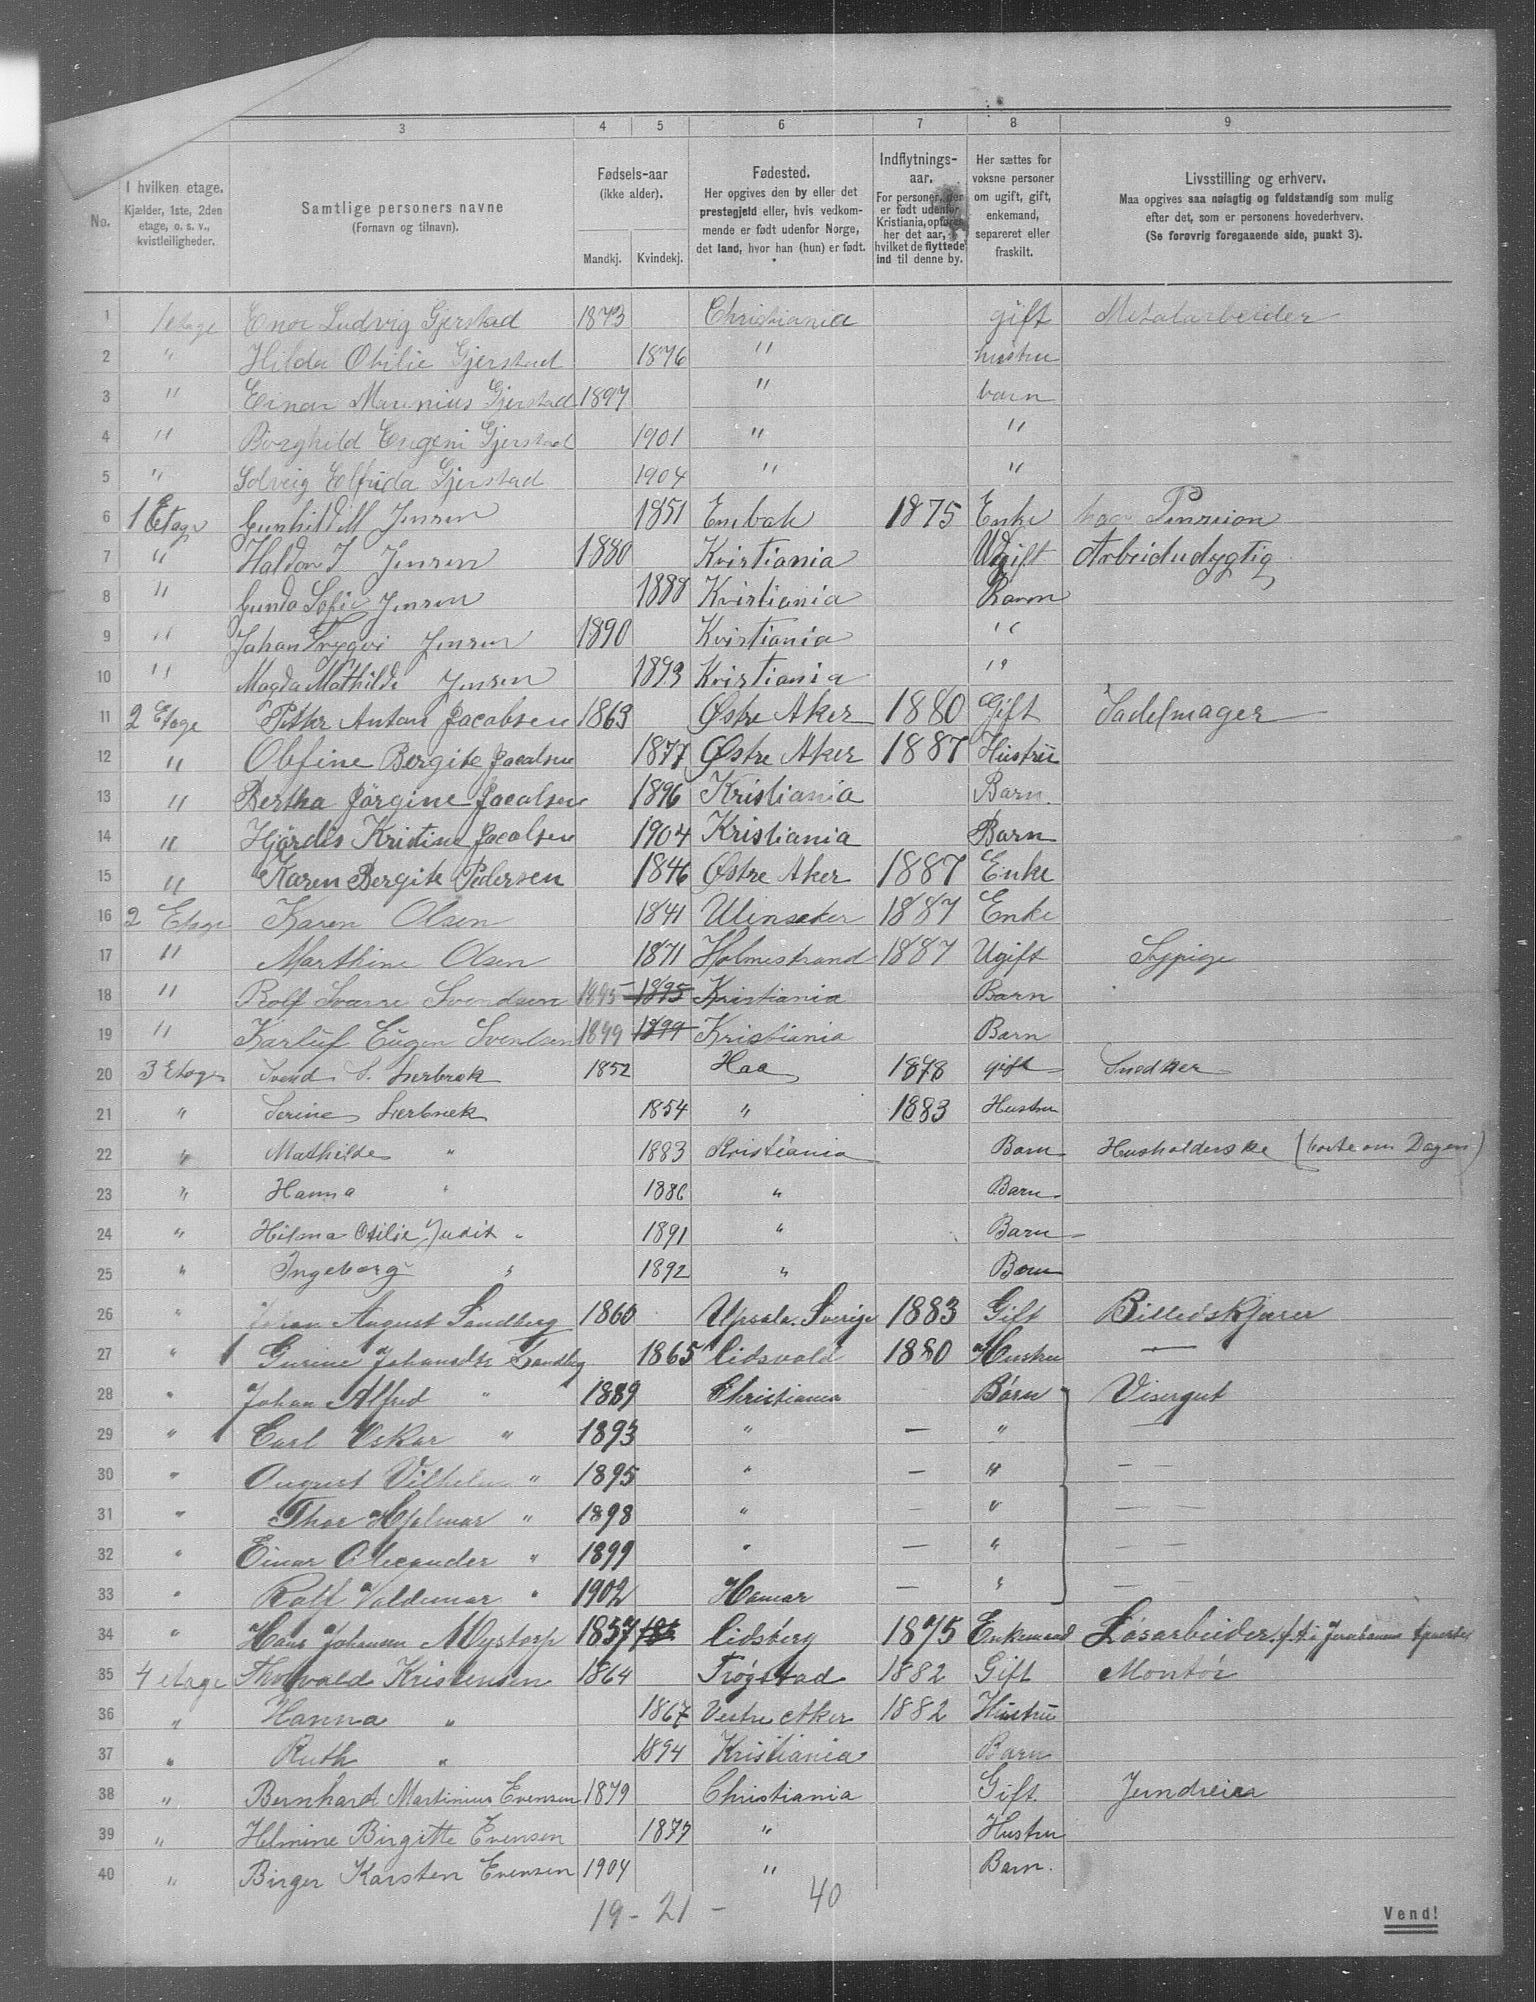 3 4 5 6 7 8 9
No.
I hvilken etage.
Kjælder, 1ste, 2den etage, o. s. v., kvistleiligheder.
Samtlige personers navne
(Fornavn og tilnavn).
Fødsels-aar
(ikke alder).
Mandkj. Kvindekj.
Fødested.
Her opgives den by eller det prestegjeld eller, hvis vedkommende er født udenfor Norge, det land, hvor han (hun) er født.
Indflytnings-aar.
For personer, der er født udenfor Kristiania, opføres her det aar, i hvilket de flyttede ind til denne by.
Her sættes for voksne personer om ugift, gift, enkemand, separeret eller fraskilt.
Livsstilling og erhverv.
Maa opgives saa nøiagtig og fuldstændig som mulig efter det, som er personens hovederhverv.
(Se forøvrig foregaaende side, punkt 3).
1 1 etage Enor Ludvig Gjerstad 1873 Christiania gift Metalarbeider
2 " Hilda Otilie Gjerstad 1876 " hustru
3 " Einar Marinius Gjerstad 1897 " barn
4 " Borghild Eugeni Gjerstad 1901 " "
5 " Solveig Elfrida Gjerstad 1904 " "
6 1 Etage Gunhild M Jensen 1851 Enebak 1875 Enke har Pension
7 " Haldon I Jensen 1880 Kristiania Ugift Arbeidudygtig
8 " Gunda Sofie Jensen 1888 Kristiania Barn
9 " Johan Trygvi Jensen 1890 Kristiania "
10 " Magda Mathilde Jensen 1893 Kristiania "
11 2 Etage Peter Anton Jacobsen 1863 Østre Aker 1880 Gift Sadelmager
12 " Olefine Bergite Jacobsen 1877 Østre Aker 1887 Hustru
13 " Bertha Jörgine Jacobsen 1896 Kristiania Barn.
14 " Hjördis Kristine Jacobsen 1904 Kristiania Barn
15 " Karen Bergite Pedersen 1846 Østre Aker 1887 Enke
16 2 Etage Karen Olsen 1841 Ulinsaker 1887 Enke
17 " Marthine Olsen 1871 Holmestrand 1887 Ugift Sypige
18 " Rolf Svarre Svendsen 1895 1895 Kristiania Barn
19 " Karluf Eugen Svendsen 1899 1899 Kristiania Barn
20 3 Etage Svend S. Lierbræk 1852 Haa 1878 gift Snedker
21 " Serine Lierbræk 1854 " 1883 Hustru
22 " Mathilde " 1883 Kristiania Barn Husholderske (borte om Dagen)
23 " Hanna " 1886 " Barn
24 " Hilma Otilie Judit " 1891 " Barn
25 " Ingeborg " 1892 " Barn
26 " Johan August Sandberg 1860 Upsala. Sverige 1883 Gift Billedskjærer
27 " Gurine Johansdtr Sandberg 1865 Eidsvold 1880 Hustru —
28 " Johan Alfred " 1889 Christiania Børn Visergut
29 " Carl Oskar " 1893 " — "
30 " August Vilhelm " 1895 " — " — —
31 " Thor Hjalmar " 1898 " — " — —
32 " Einar Alexander " 1899 " — " — —
33 " Rolf Valdemar " 1902 Hamar — " — —
34 " Hans Johansen Mystorp 1857 Eidsberg 1875 Enkemand Løsarbeider.
35 4 etage Thorvald Kristensen 1864 Trøgstad 1882 Gift Montör
36 " Hanna " 1867 Vestre Aker 1882 Hustru
37 " Ruth " 1894 Kristiania Barn
38 " Bernhard Martinius Evensen 1879 Christiania Gift. Jerndreier
39 " Helmine Birgitte Evensen 1877 " Hustru
40 " Birger Karsten Evensen 1904 " Barn.
19 - 21 - 40
Vend!